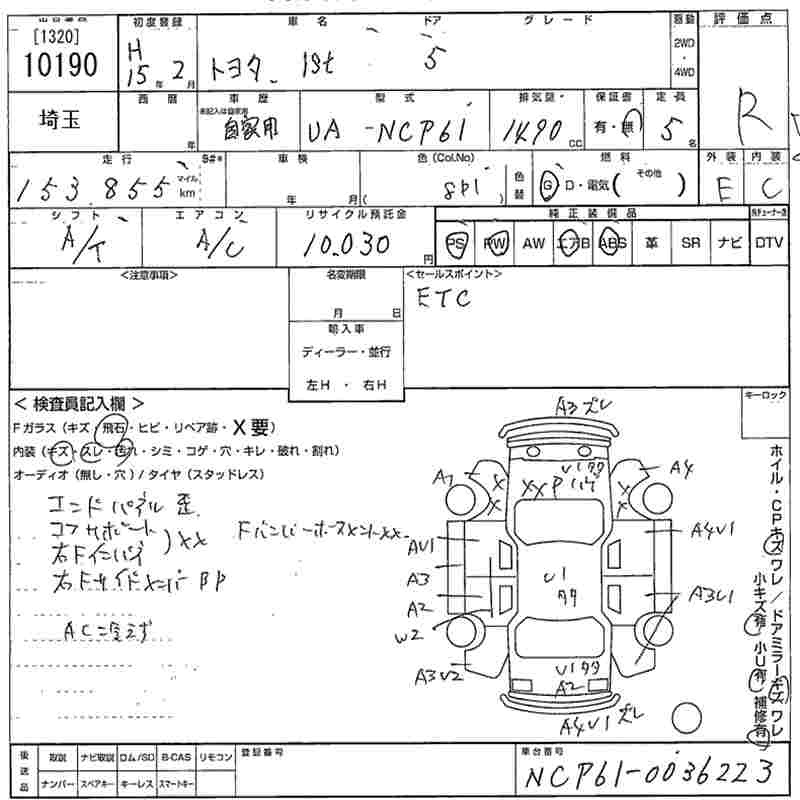 [1320]
10190
埼玉
初度登録
H
15年 2月
車名 ドア グレード
トヨタ ist 5
駆動
2WD
・
4WD
評価点
R
西暦
年
車歴
未記入は自家用
自家用
型式
UA-NCP61
排気量
1490
CC
保証書
有・無
定員
5
名
走行
153,855
マイル
km
S#*
車検
年 月(
色(Col.No)
8P1
)
色替
燃料
G D・電気( その他 )
外装 内装
E C
シフト
A/T
エアコン
A/C
リサイクル預託金
10,030
円
純正装備品
PS PW AW エアB ABS 革 SR ナビ DTV
<注意事項>
名変期限
月 日
輸入車
ディーラー・並行
左H ・ 右H
<セールスポイント>
ETC
キーロック
<検査員記入欄>
Fガラス(キズ・飛石・ヒビ・リペア跡・X要)
内装(キズ・スレ・汚れ・シミ・コゲ・穴・キレ・破れ・割れ)
オーディオ(無し・穴)/タイヤ(スタッドレス)
エンドパネル 歪
コアサポート
右Fインパネ )XX
右FサイドメンバBP
Fバンパーホースメント XX
AC冷えず
A3ズレ
U1タワ
XX P ハゲ
A7
X
X
X
X
A4
AU1
A4U1
A3
A2
W2
U1
タワ
A3U1
A3U2
U1タワ
A2
A4U1ズレ
ホイル・CPキズワレ/ドアミラーキズワレ
小キズ有 小U有 補修有
後送品
取説 ナビ取説 ロム/SD B-CAS リモコン
ナンバー スペアキー キーレス スマートキー
登録番号
車台番号
NCP61-0036223